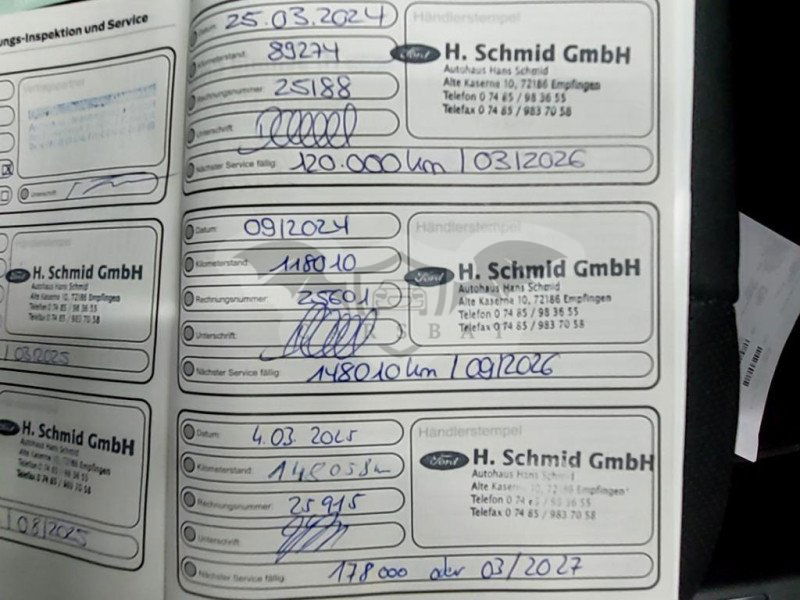 ungs-Inspektion und Service
Vertragspartner
Unterschrift:
Händlerstempel
Ford H. Schmid GmbH
Autohaus Hans Schmid
Alte Kaserne 10, 72186 Empfingen
Telefon 0 74 85 / 98 36 55
Telefax 0 74 85 / 983 70 58
/ 03/2025
Ford H. Schmid GmbH
Autohaus Hans Schmid
Alte Kaserne 10, 72186 Empfingen
Telefon 0 74 85 / 98 36 55
Telefax 0 74 85 / 983 70 58
/ 08/2025
Datum: 25.03.2024
Kilometerstand: 89274
Rechnungsnummer: 25188
Unterschrift:
Händlerstempel
Ford H. Schmid GmbH
Autohaus Hans Schmid
Alte Kaserne 10, 72186 Empfingen
Telefon 0 74 85 / 98 36 55
Telefax 0 74 85 / 983 70 58
Nächster Service fällig: 120.000 km / 03/2026
Datum: 09/2024
Kilometerstand: 118010
Rechnungsnummer: 25601
Unterschrift:
Händlerstempel
Ford H. Schmid GmbH
Autohaus Hans Schmid
Alte Kaserne 10, 72186 Empfingen
Telefon 0 74 85 / 98 36 55
Telefax 0 74 85 / 983 70 58
Nächster Service fällig: 148010 km / 09/2026
Datum: 4.03.2025
Kilometerstand:
Rechnungsnummer: 25915
Unterschrift:
Händlerstempel
Ford H. Schmid GmbH
Autohaus Hans
Alte 72186 Empfingen
Telefon 0 74 98 36 55
Telefax 0 74 85 / 983 70 58
Nächster Service fällig: 178000 oder 03/2027